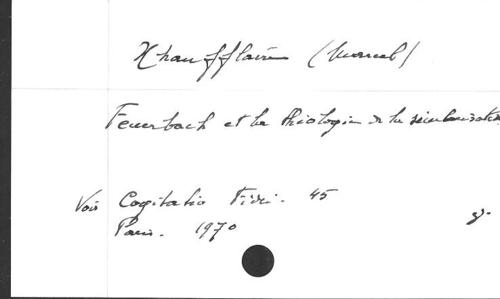 Xhaufflaire (Marcel)
Feuerbach et la théologie de la sécularisation
Voir Cogitatio Fidei. 45
Paris. 1970